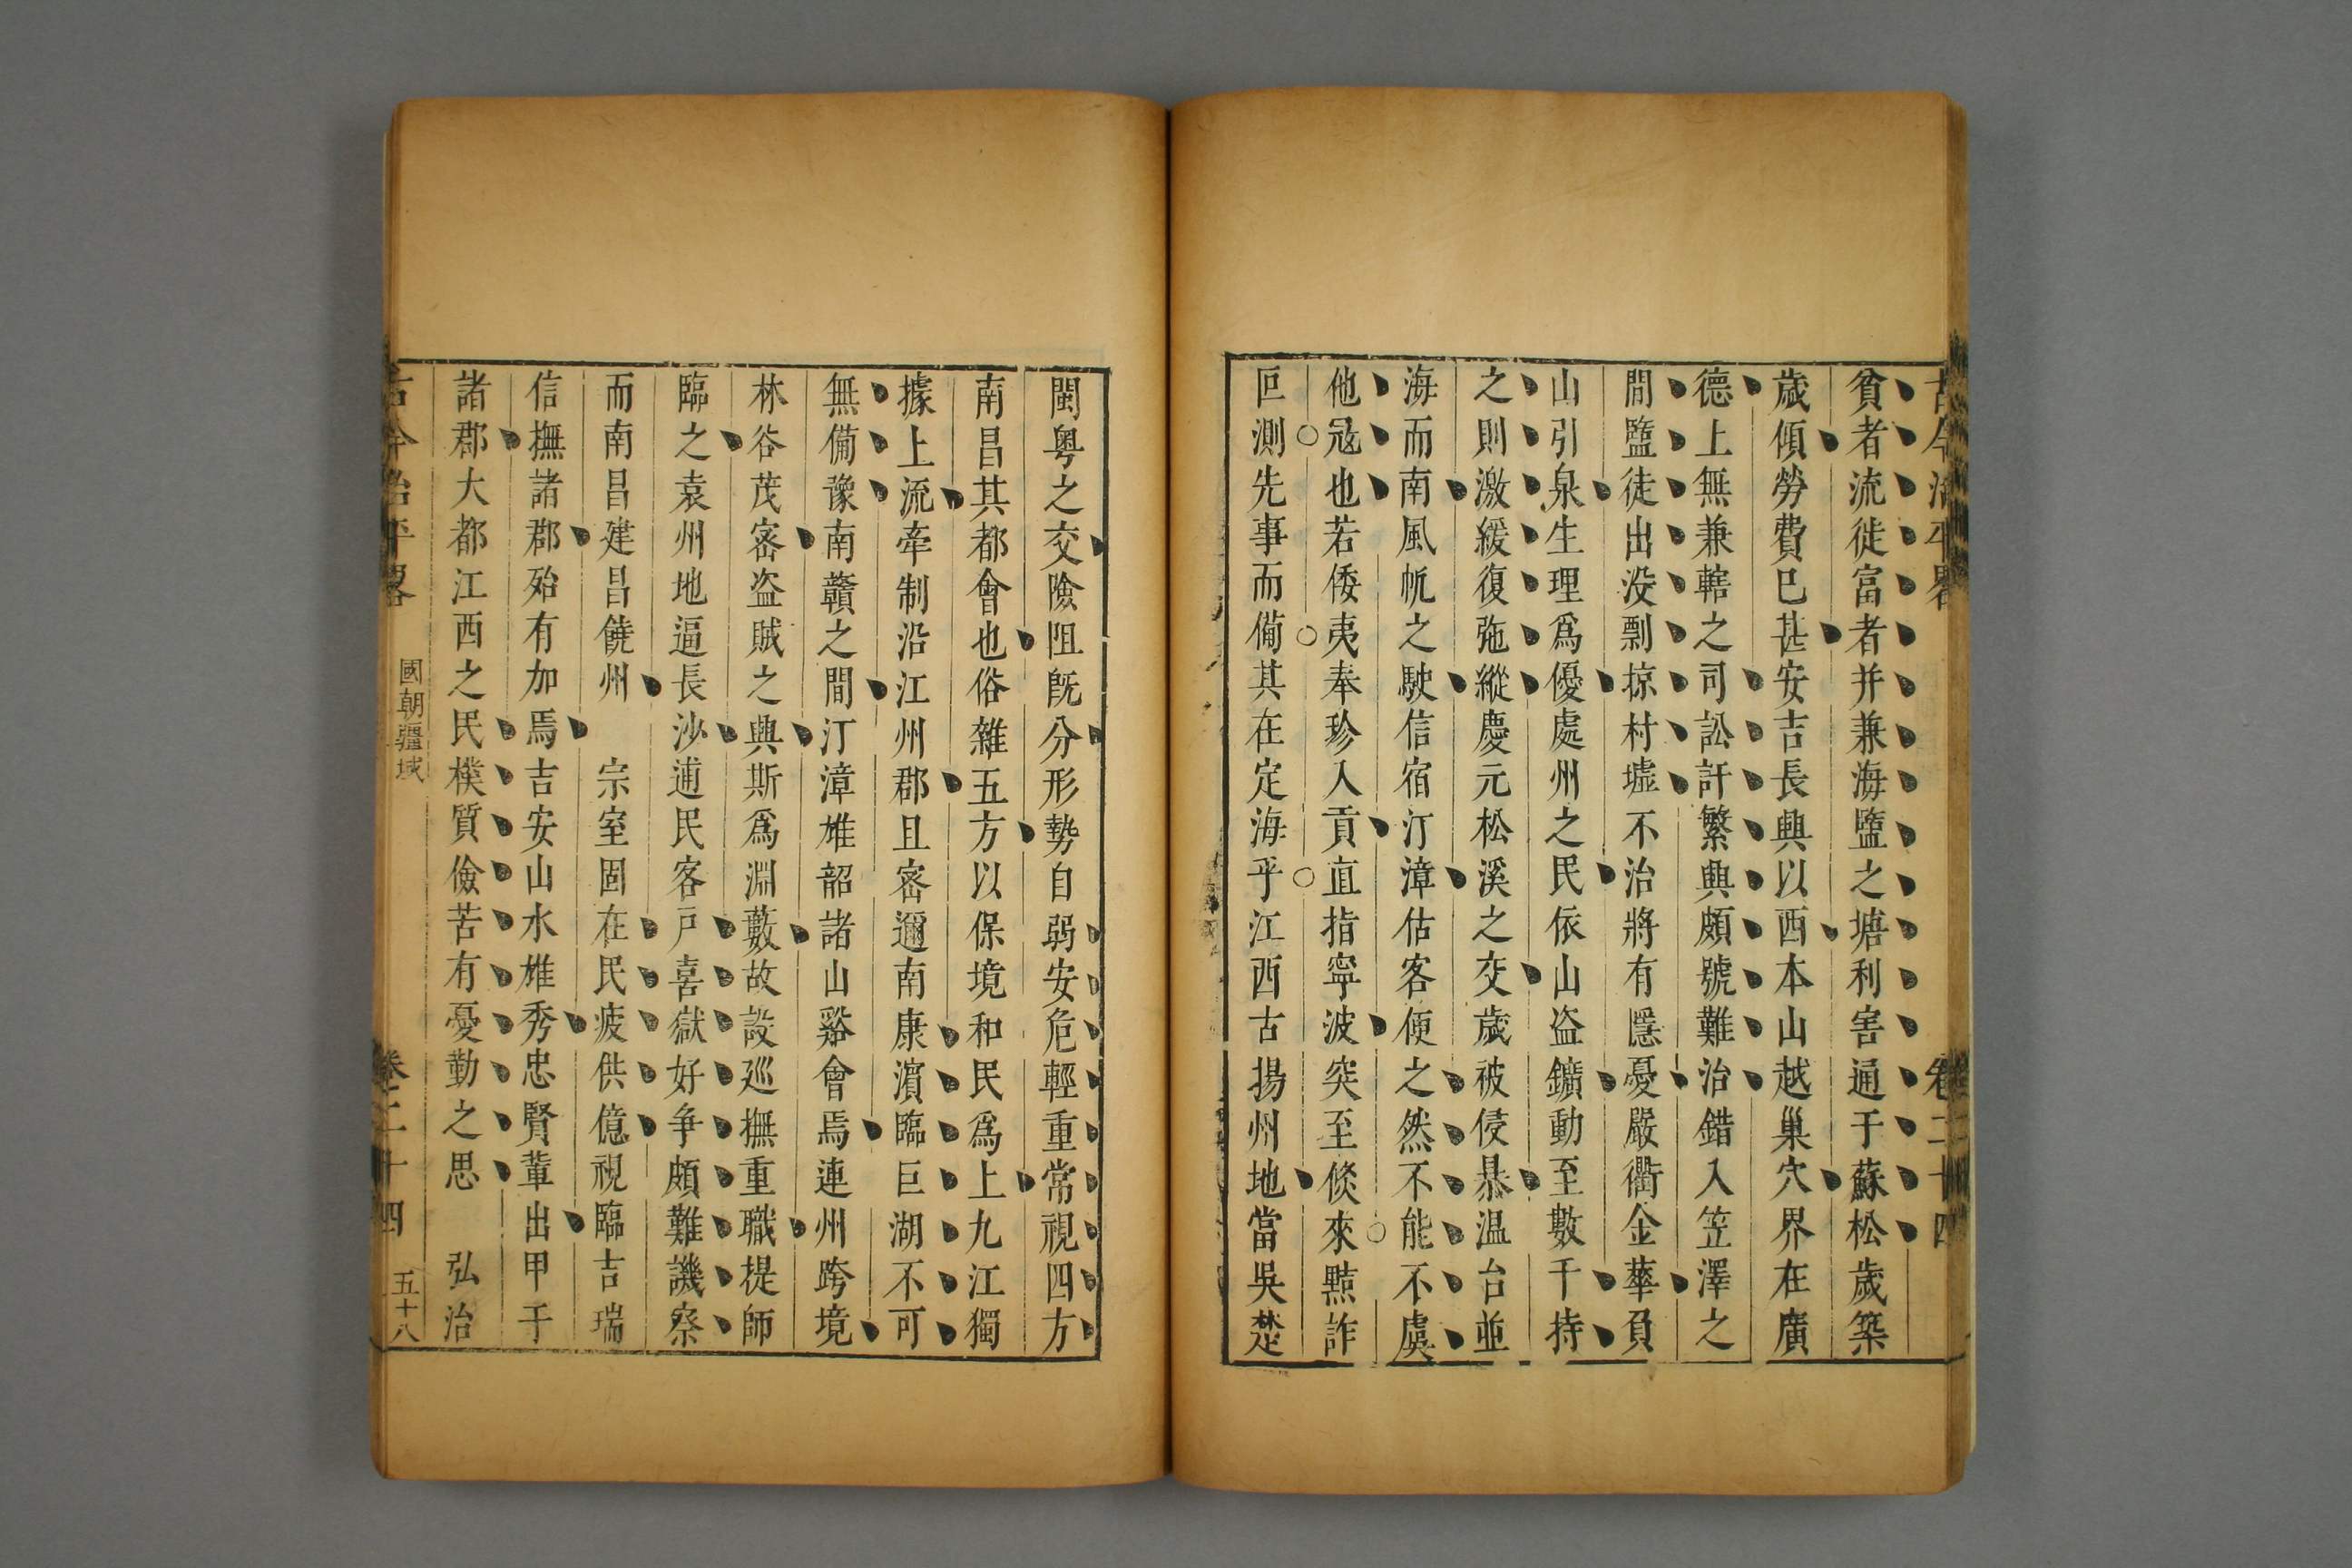 古今治平略 卷二十四
貧者流徙富者并兼海鹽之塘利害通于蘇松歲築
歲傾勞費巳甚安吉長興以西本山越巢穴界在廣
德上無兼轄之司訟訐繁興頗號難治錯入笠澤之
間鹽徒出没剽掠村墟不治將有隱憂嚴衢金華負
山引泉生理爲優處州之民依山盜鑛動至數千持
之則激緩復弛縱慶元松溪之交歲被侵暴温台並
海而南風帆之駛信宿汀漳估客便之然不能不虞
他寇也若倭夷奉珍入貢直指寧波突至倐來黠詐
叵測先事而備其在定海乎江西古揚州地當吳楚
閩粤之交險阻既分形勢自弱安危輕重常視四方
南昌其都會也俗雜五方以保境和民爲上九江獨
據上流牽制沿江州郡且密邇南康濵臨巨湖不可
無備豫南贛之間汀漳雄韶諸山谿會焉連州跨境
林谷茂密盜賊之興斯爲淵藪故設巡撫重職提師
臨之袁州地逼長沙逋民客戸喜獄好爭頗難譏察
而南昌建昌饒州 宗室固在民疲供億視臨吉瑞
信撫諸郡殆有加焉吉安山水雄秀忠賢輩出甲于
諸郡大都江西之民樸質儉苦有憂勤之思 弘治
古今治平畧 國朝疆域 卷二十四 五十八